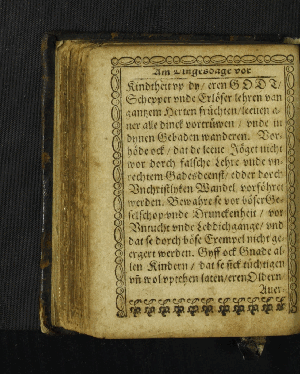 Am Dingesdage vor
Kindtheit vp dy / eren GODT /
Schepper vnde Erlöser lehren van
gantzem Herten früchten / leeuen a-
uer alle dinck vortrüwen / vnde in
dynen Gebaden wanderen. Vor-
höde ock / dat de leeue Jöget nicht
wor dorch falsche Lehre vnde vn-
rechtem Gadesdenst / edder dorch
Vnchristlyken Wandel vorföhret
werden. Bewahre se vor böser Ge-
selschop vnde Drunckenheit / vor
Vntucht vnde Leddichgange / vnd
dat se dorch böse Exempel nicht ge-
ergert werden. Gyff ock Gnade al-
len Kindern / dat se sick tüchtigen
vñ wol vptehen laten / eren Oldern
Auer-